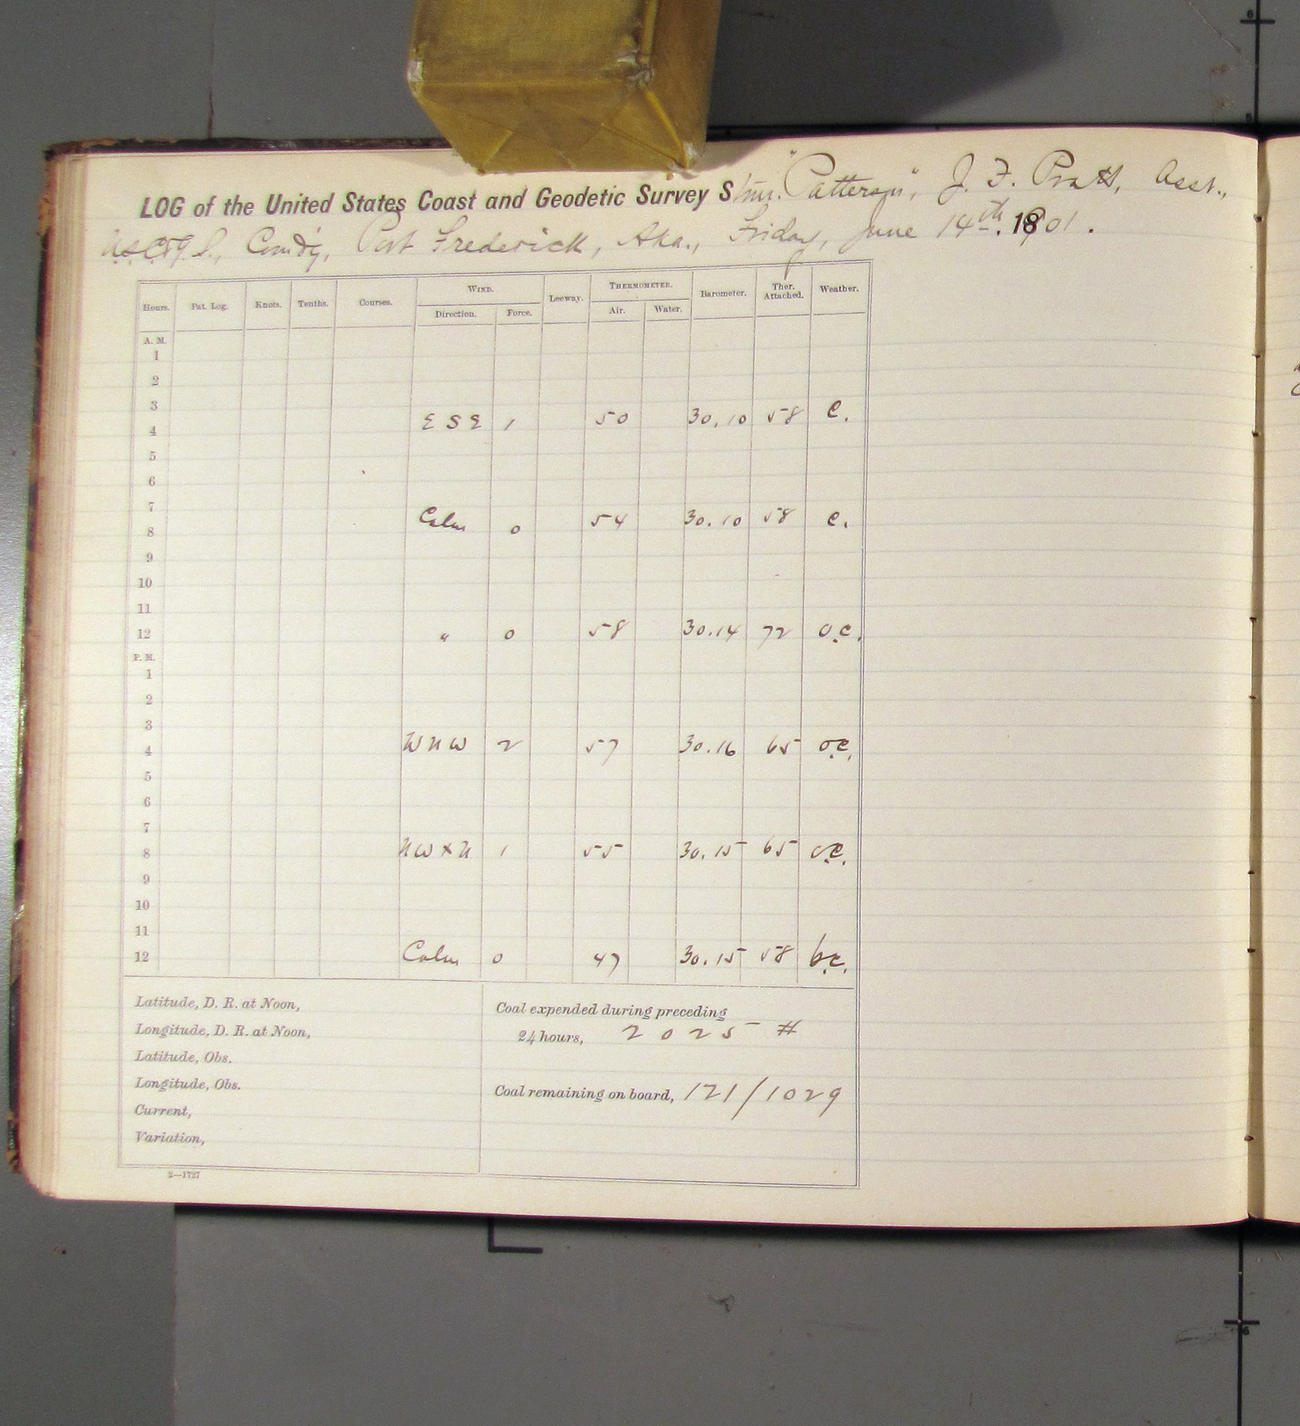 LOG of the United States Coast and Geodetic Survey Stmr. "Patterson", J. F. Pratt, Asst.,
U.S.C.&G.S., Comd'g, Port Frederick, Aka., Friday, June 14th. 1901.
Hours. Pat. Log. Knots. Tenths. Courses. WIND. Direction. Force. Leeway. THERMOMETER. Air. Water. Barometer. Ther. Attached. Weather.
A. M.
1
2
3
4 ESE 1 50 30.10 58 c.
5
6
7
8 Calm 0 54 30.10 58 c.
9
10
11
12 " 0 58 30.14 72 o.c.
P. M.
1
2
3
4 WNW 2 57 30.16 65 o.c.
5
6
7
8 NW x N 1 55 30.15 65 o.c.
9
10
11
12 Calm 0 47 30.15 58 b.c.
Latitude, D. R. at Noon,
Longitude, D. R. at Noon,
Latitude, Obs.
Longitude, Obs.
Current,
Variation,
Coal expended during preceding
24 hours, 2025 #
Coal remaining on board, 121/1029
2—1727